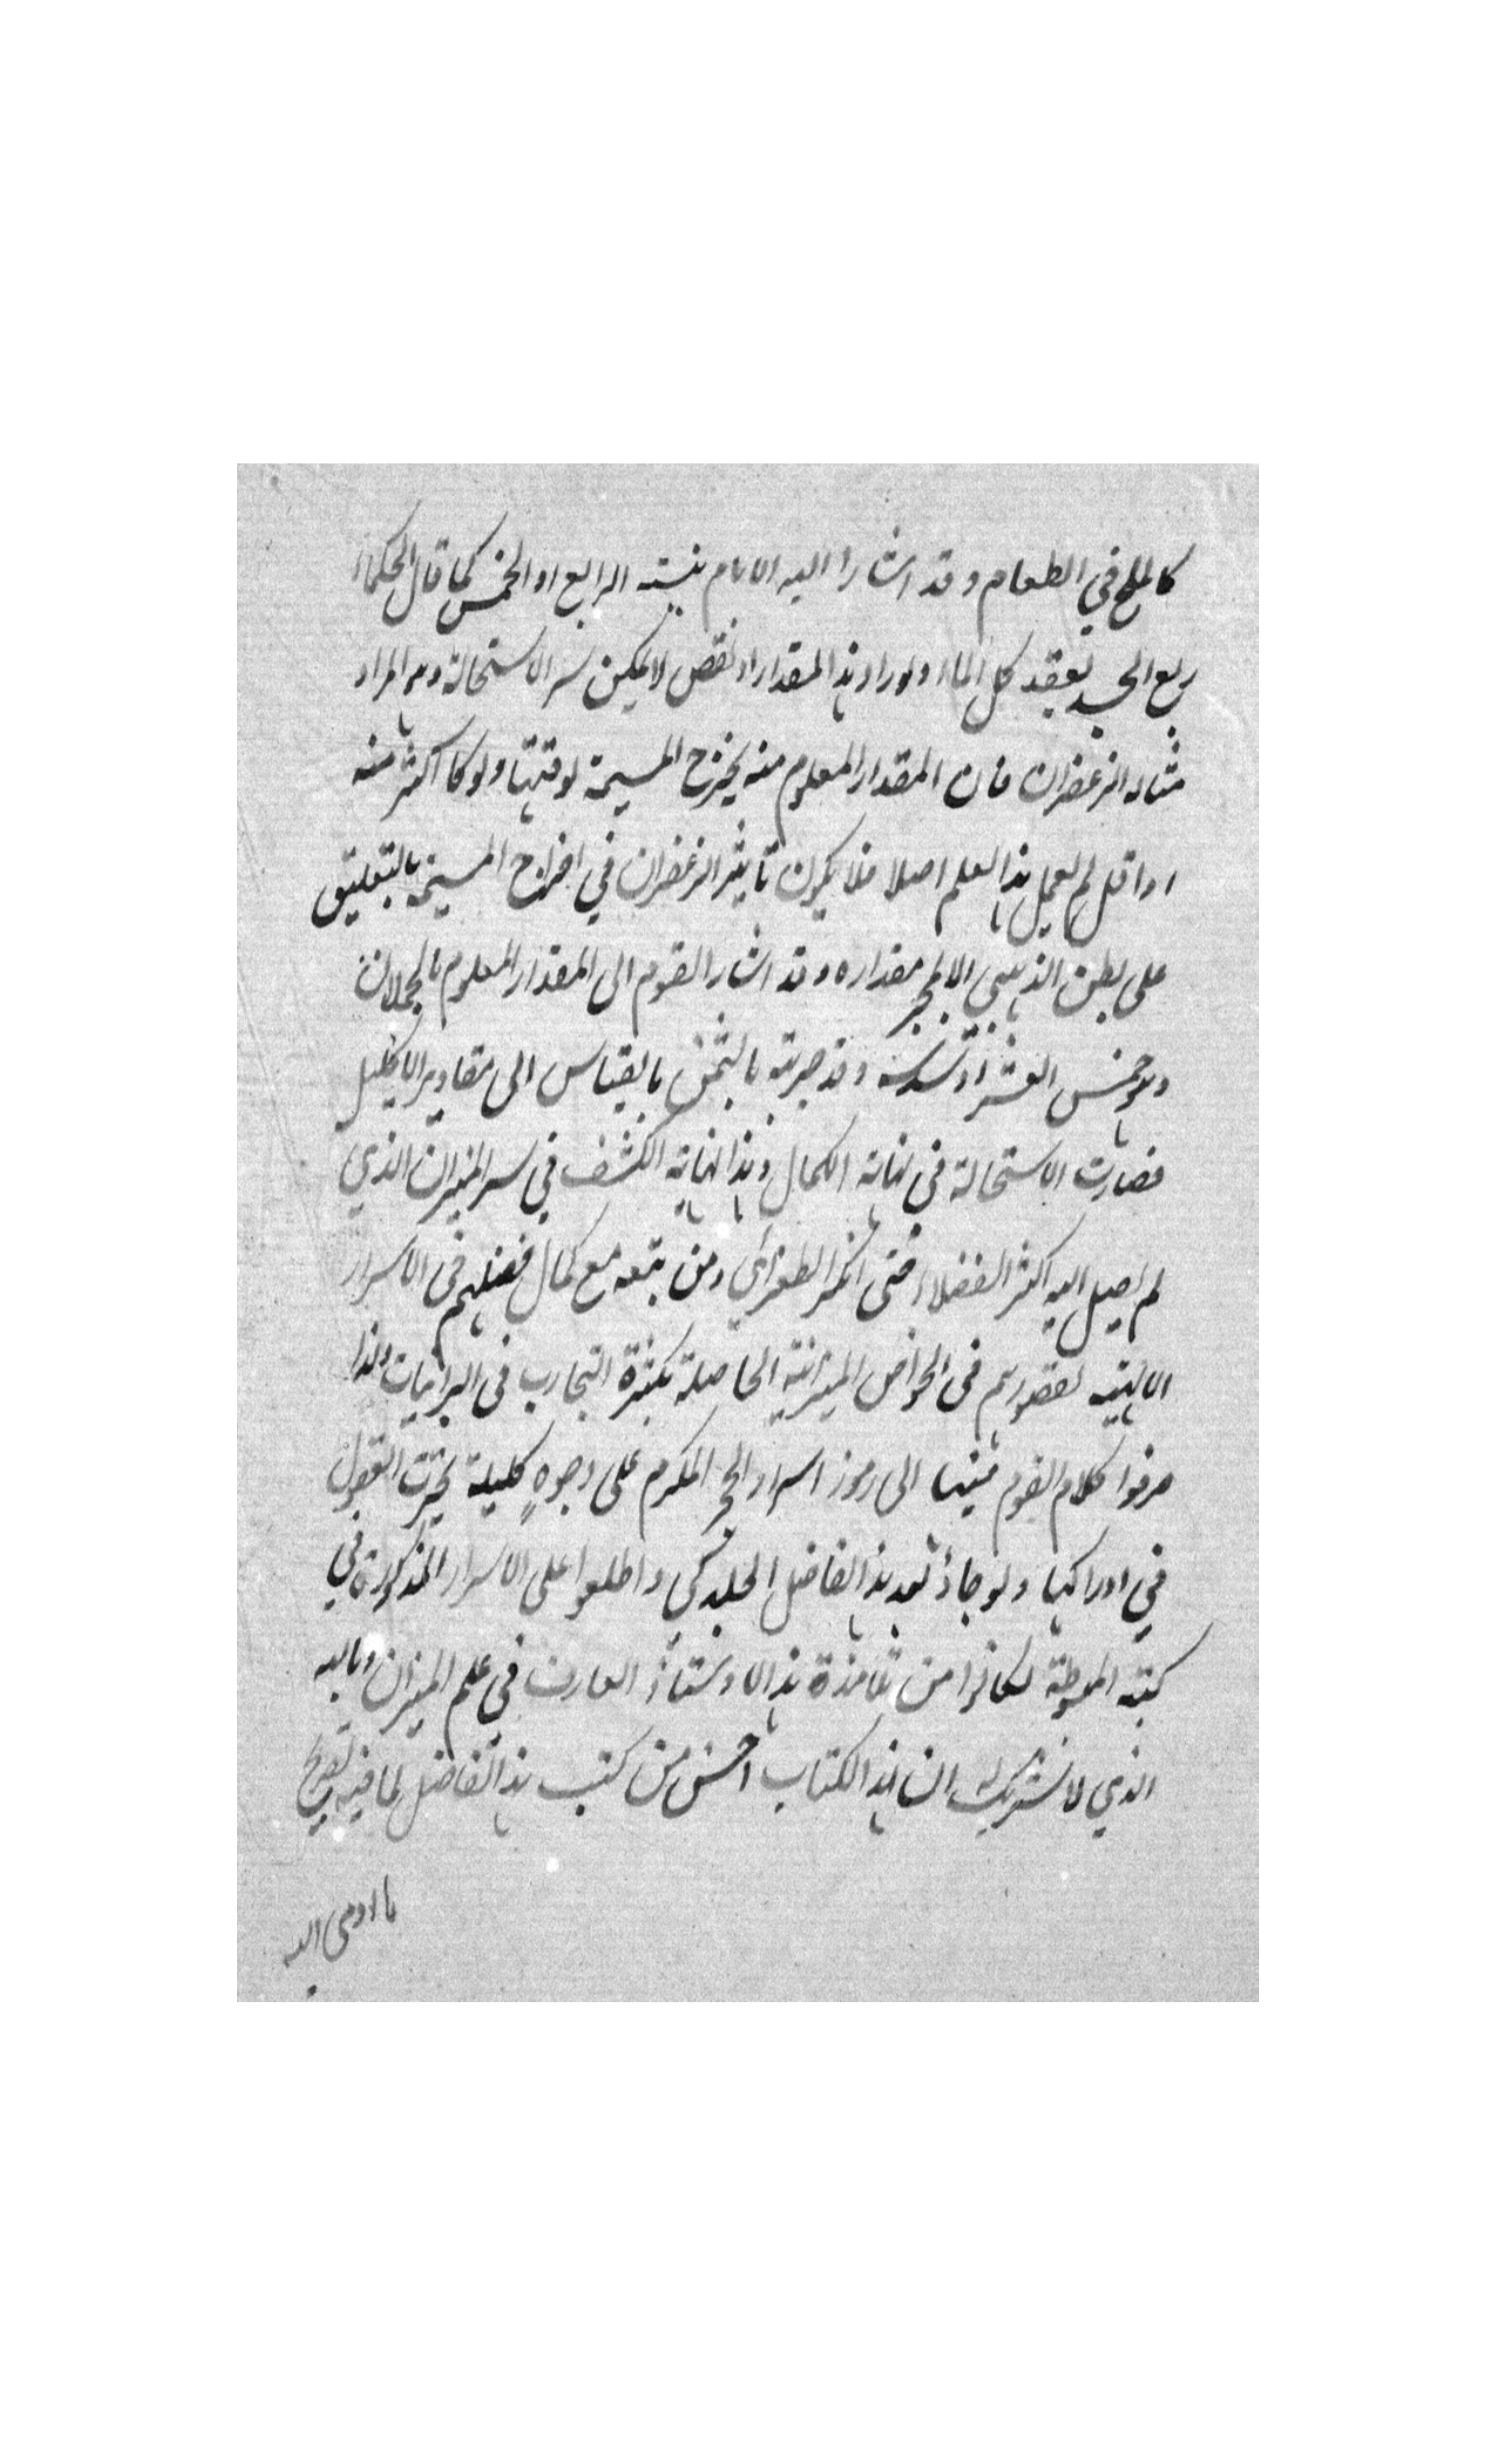 كالملح في الطعام وقد اشار اليه الامام بنسبته الرابع او الخمس كما قال الحكماء
ربع الجسد يعقد كل الماء ولو زاد هذا المقدار او نقص لا يمكن سر الاستحالة وهو المراد
مثاله الزعفران فان المقدار المعلوم منه يخرج المسيمة لوقتها ولو كا اكثر منه
او اقل لم يعمل هذا العلم اصلا فلا يكون تأثير الزعفران في اخراج المسيمة بالتعليق
على بطن الذهبي الا لمقداره وقد اشار القوم الى المقدار المعلوم
وهو خمس العشر او سدسه وقد جربته بالثمن بالقياس الى مقادير الاكليل
فصارت الاستحالة في نهاية الكمال وهذا نهاية الكشف في سر الميزان الذي
لم يصل اليه اكثر الفضلاء حتى انكر الطغرائي ومن تبعه مع كمال فضلهم في الاسرار
الالهية لقصورهم في الخواص الميزانية الحاصلة بكثرة التجارب في البرانيات ولذا
صرفوا كلام القوم فيها الى رموز اسرار الحجر المكرم على وجوهٍ كليلة تحيرت العقول
في ادراكها ولو جاؤا بعد هذا الفاضل الجلدكي واطلعوا على الاسرار المذكورة في
كتبه المبسوطة لكانوا من تلامذة هذا الاوستاذ العارف في علم الميزان وبالله
الذي لا شريك له ان هذا الكتاب احسن من كتب هذا الفاضل لما فيه تصريح
ما اومى اليه